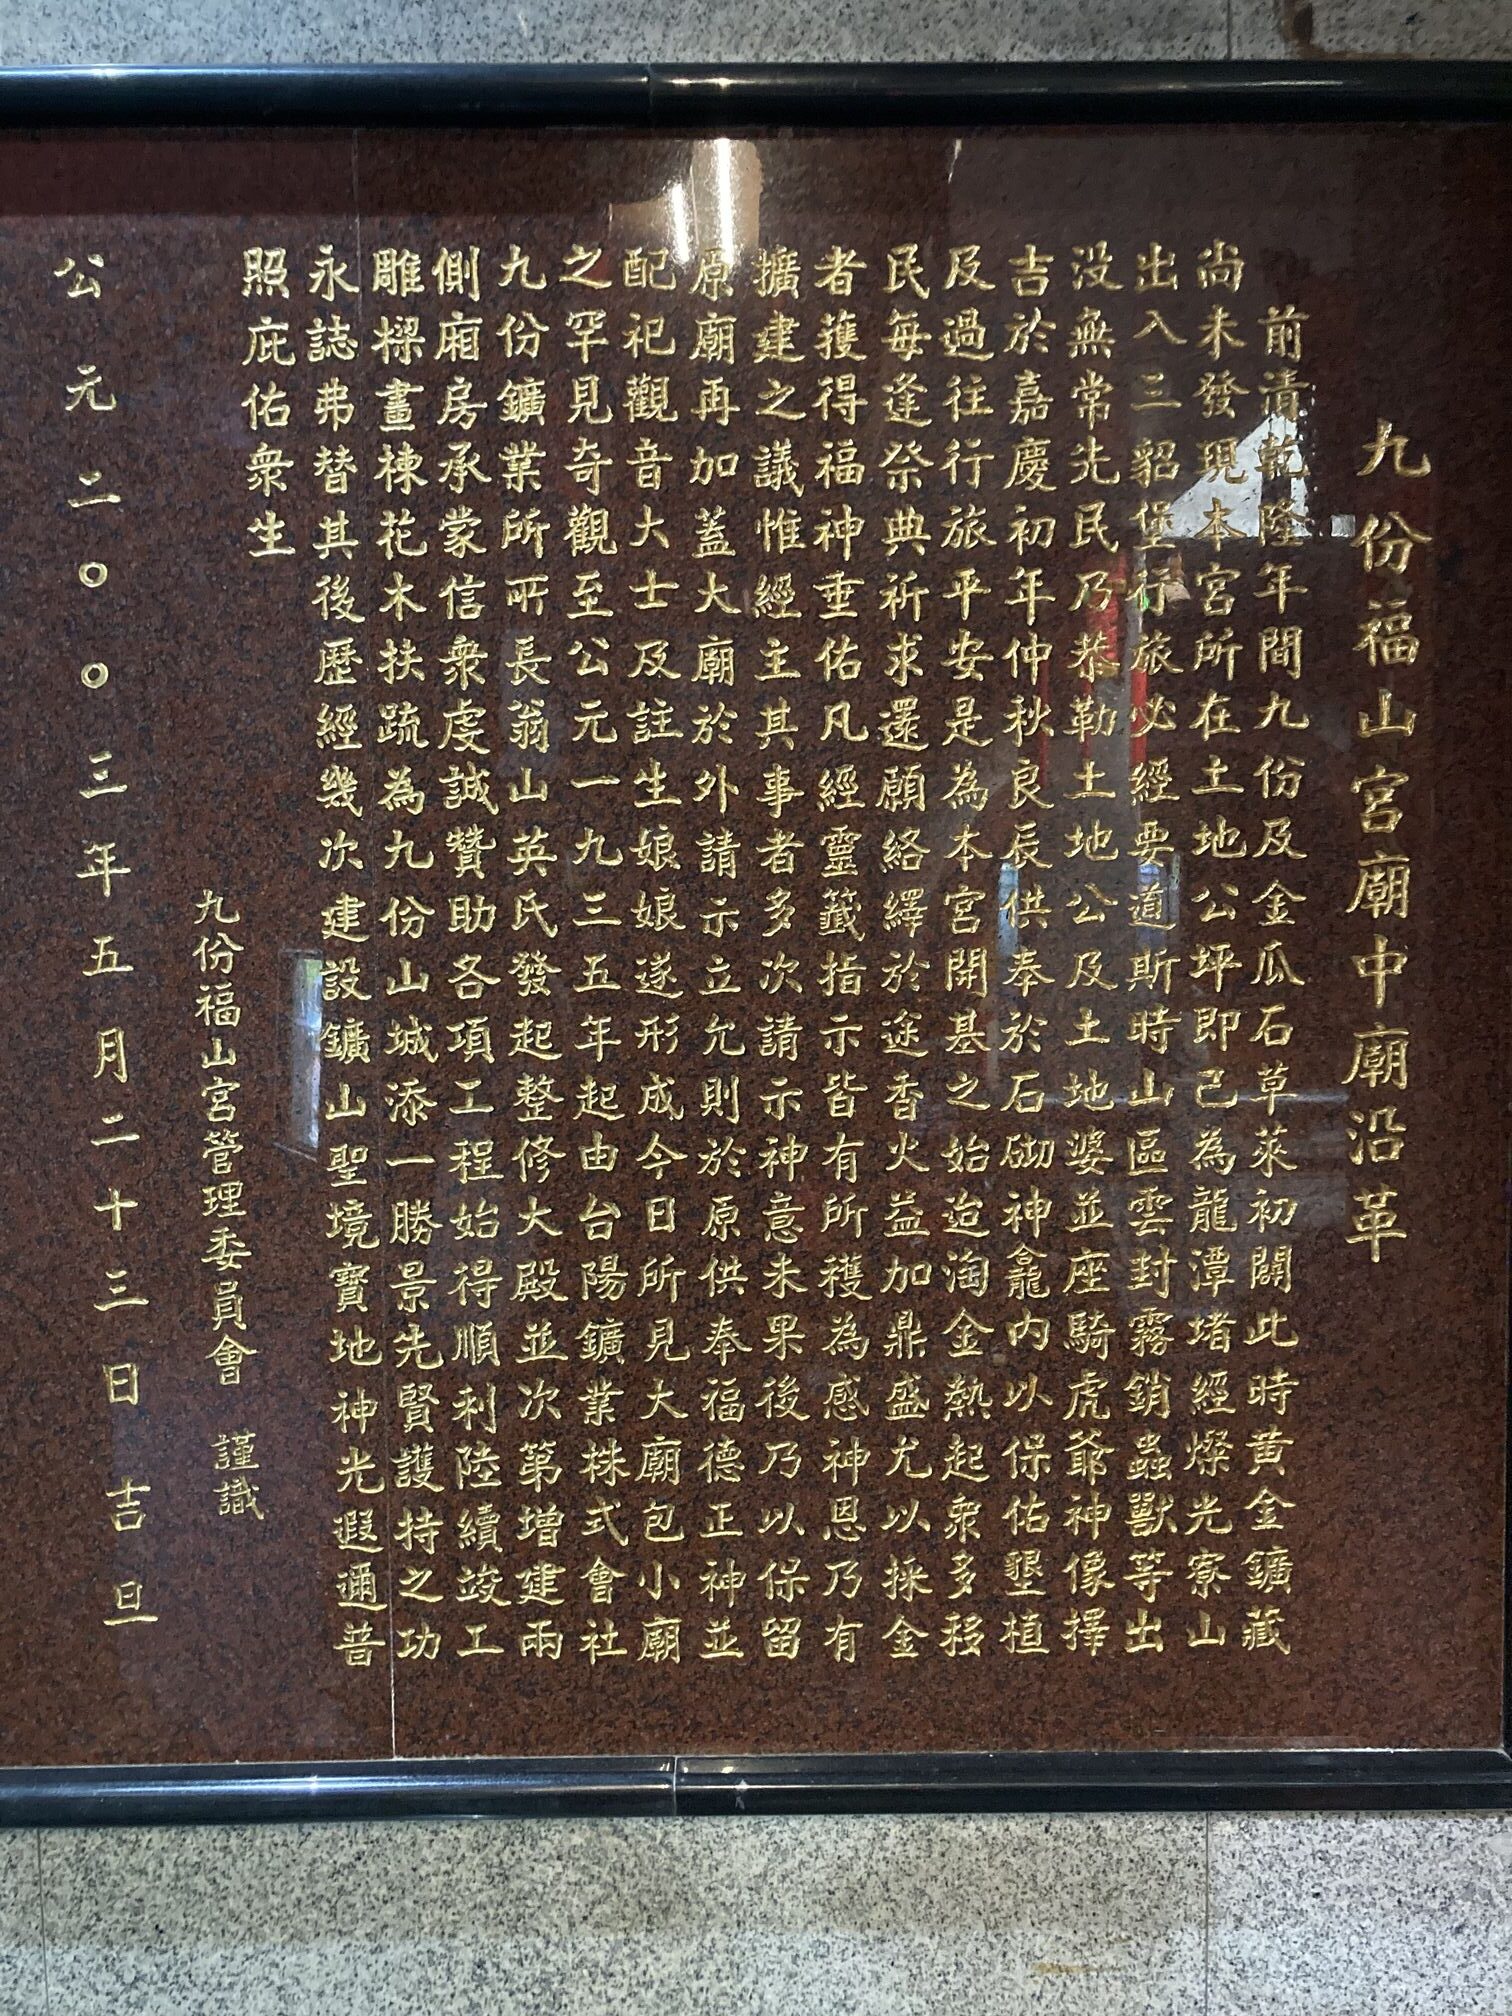 九份福山宮廟中廟沿革
前清乾隆年間九份及金瓜石草萊初闢此時黃金鑛藏
尚未發現本宮所在土地公坪即已為龍潭堵經燦光寮山
出入三貂堡行旅必經要道斯時山區雲封霧銷蟲獸等出
没無常先民乃恭勒土地公及土地婆並座騎虎爺神像擇
吉於嘉慶初年仲秋良辰供奉於石砌神龕內以保佑墾植
及過往行旅平安是為本宮開基之始迨淘金熱起衆多移
民每逢祭典祈求還願絡繹於途香火益加鼎盛尤以採金
者獲得福神垂佑凡經靈籤指示皆有所穫為感神恩乃有
擴建之議惟經主其事者多次請示神意未果後乃以保留
原廟再加蓋大廟於外請示立允則於原供奉福德正神並
配祀觀音大士及註生娘娘遂形成今日所見大廟包小廟
之罕見奇觀至公元一九三五年起由台陽鑛業株式會社
九份鑛業所所長翁山英氏發起整修大殿並次第增建兩
側廂房承蒙信衆虔誠贊助各項工程始得順利陸續竣工
雕樑畫棟花木扶疏為九份山城添一勝景先賢護持之功
永誌弗替其後歷經幾次建設鑛山聖境寶地神光遐邇普
照庇佑衆生
九份福山宮管理委員會 謹識
公元二００三年五月二十三日吉旦